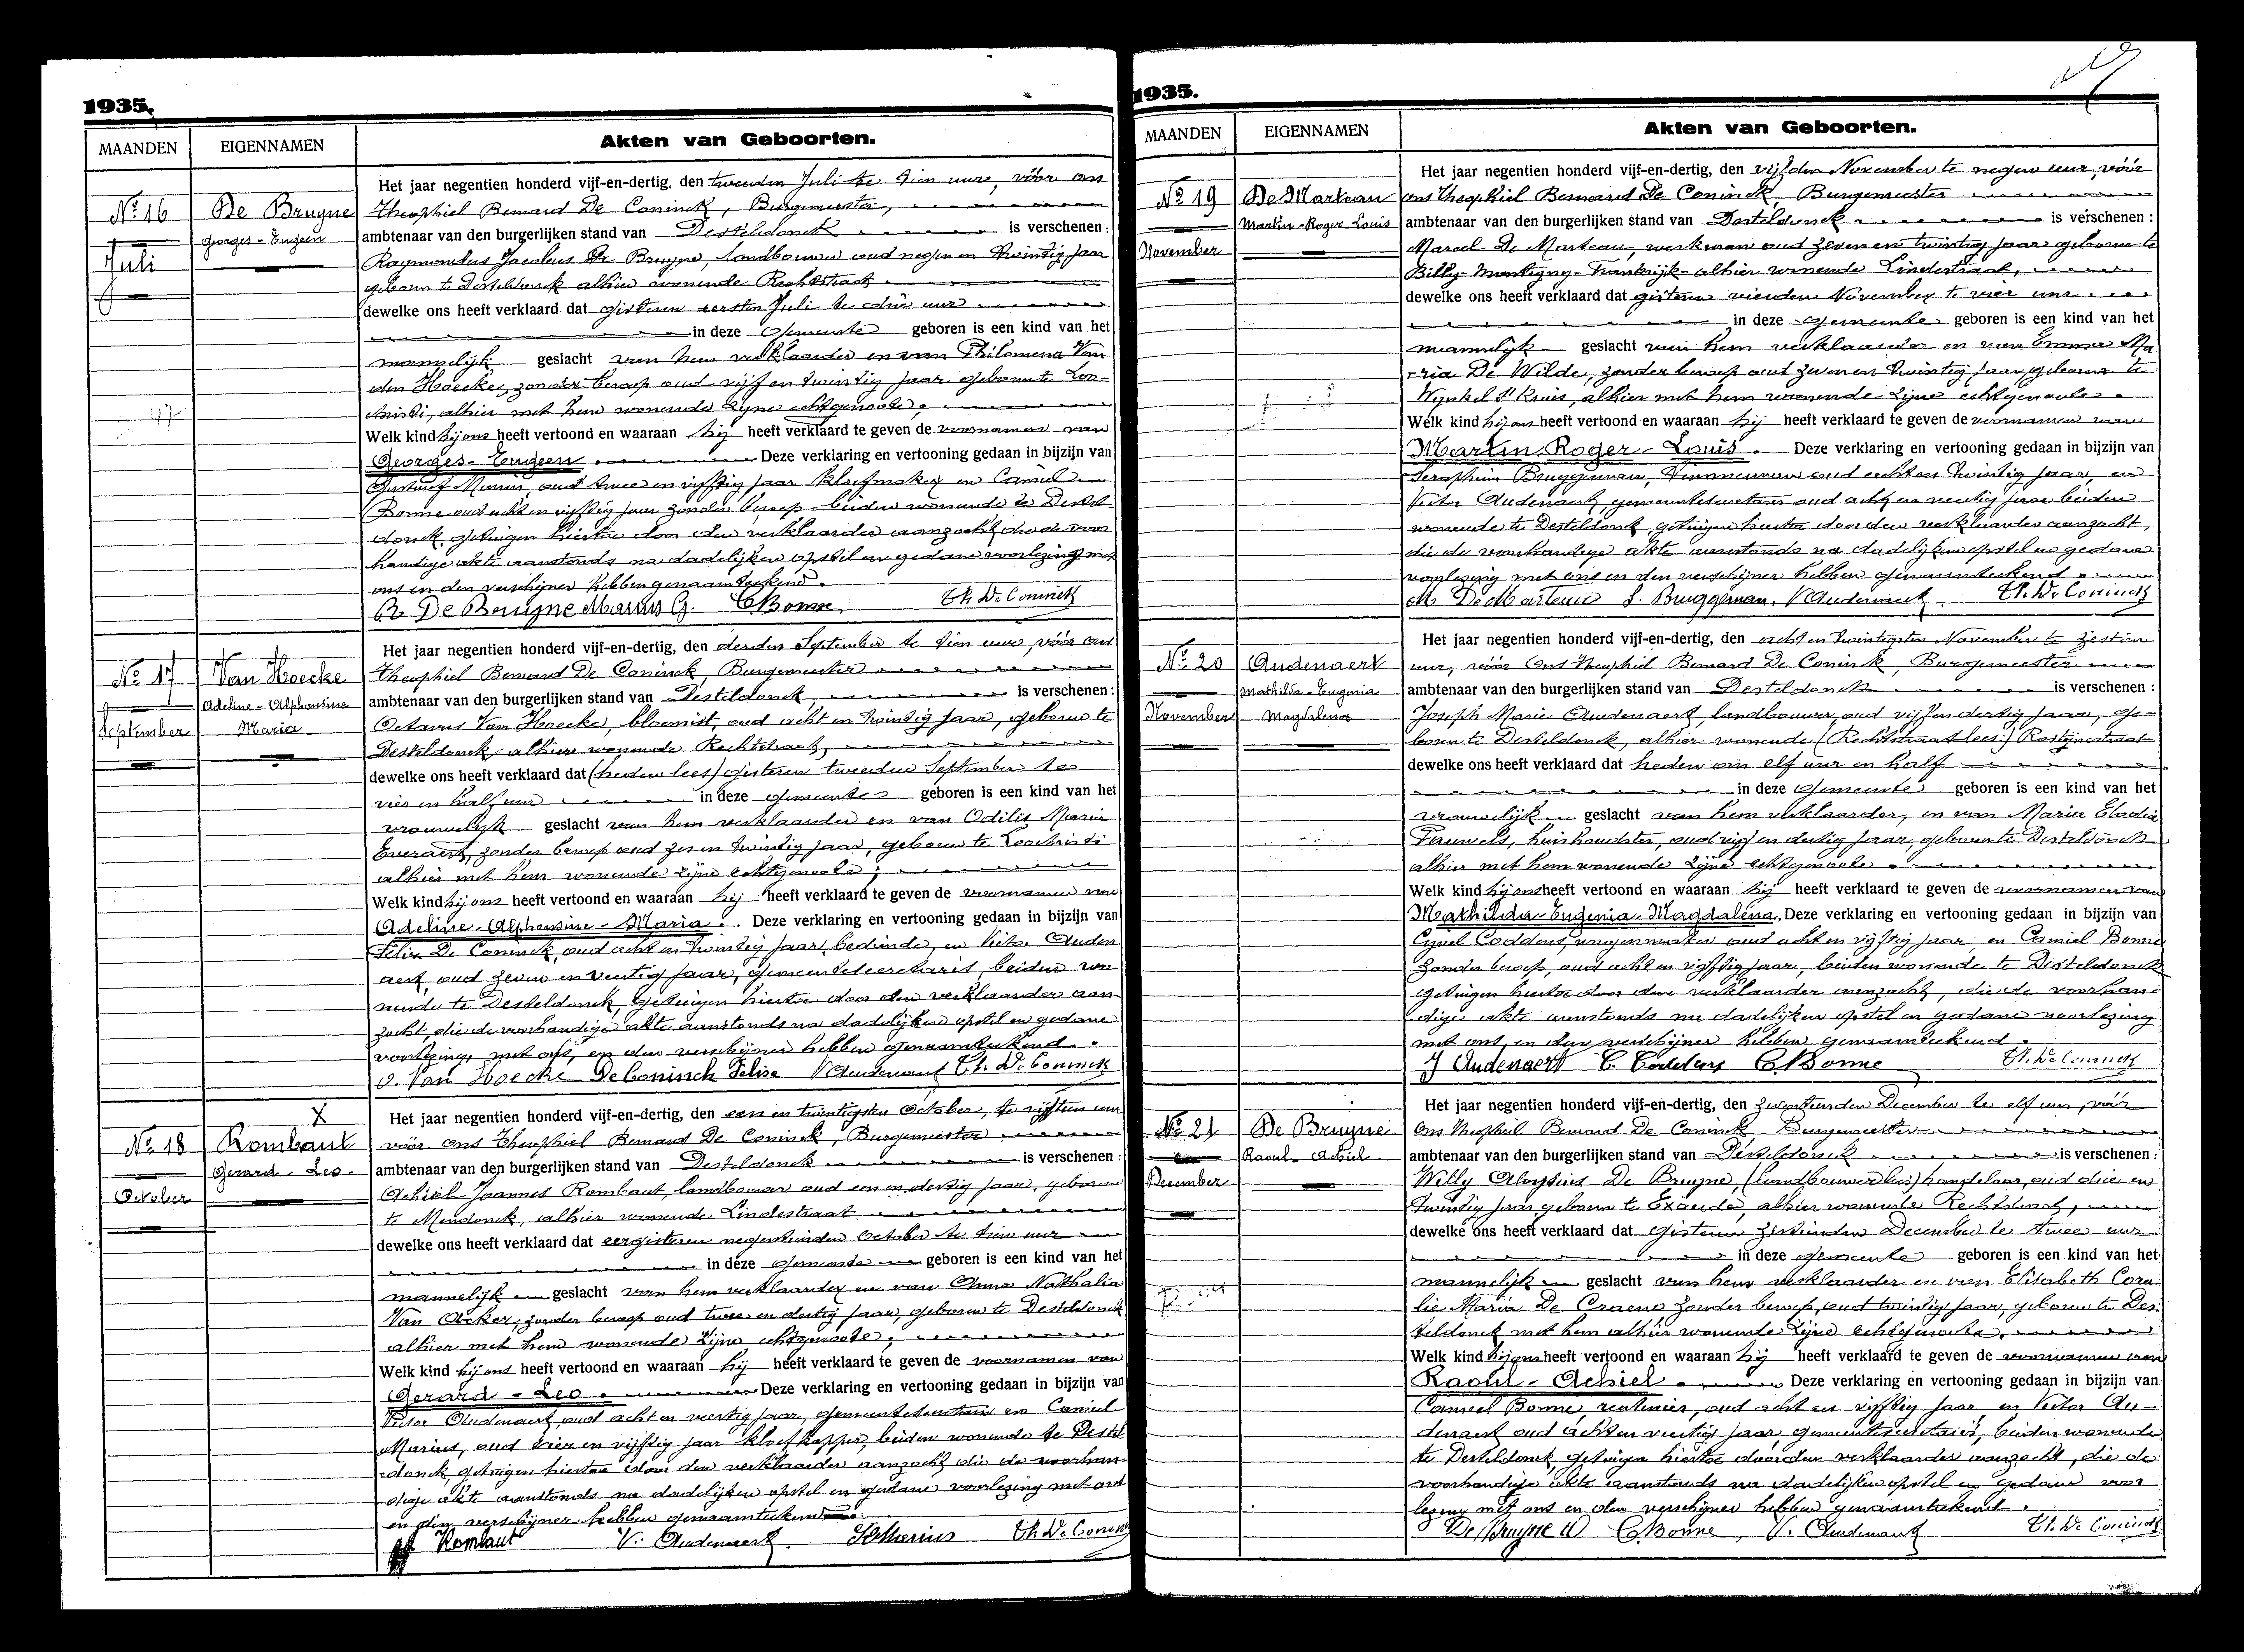 1935.
MAANDEN
EIGENNAMEN
Akten van Geboorten.
Nº 16
Juli
De Bruyne
Georges-Eugeen
Het jaar negentien honderd vijf-en-dertig, den tweeden Juli te tien ure, vóór ons
Theophiel Bernard De Coninck, Burgemeester,
ambtenaar van den burgerlijken stand van Desteldonck is verschenen:
Raymondus Jacobus De Bruyne, landbouwer oud negen en twintig jaar
geboren te Desteldonck alhier wonende Rechtstraat
dewelke ons heeft verklaard dat gisteren eersten Juli te drie uur
in deze Gemeente geboren is een kind van het
mannelijk geslacht van hem verklaarder en van Philomena Van
den Hoecke, zonder beroep oud vijf en twintig jaar geboren te Loo-
christi, alhier met hem wonende zijne echtgenoote.
Welk kind hij ons heeft vertoond en waaraan hij heeft verklaard te geven de voornamen van
Georges-Eugeen. Deze verklaring en vertooning gedaan in bijzijn van
Gustaaf Marius, oud twee en vijftig jaar kloefmaker en Camiel
Bonne oud acht en vijftig jaar zonder beroep beiden wonende te Destel-
donck getuigen hiertoe door den verklaarder aanzocht die de voor
handige akte aanstonds na dadelijken opstel en gedane voorlezing met
ons en den verschijner hebben genaamteekend.
R. De Bruyne Marius G. C Bonne Th. De Coninck
Nº 17
September
Van Hoecke
Adeline-Alphonsine
Maria
Het jaar negentien honderd vijf-en-dertig, den derden September te tien ure, vóór ons
Theophiel Bernard De Coninck, Burgemeester
ambtenaar van den burgerlijken stand van Desteldonck, is verschenen:
Octavus Van Hoecke, bloemist, oud acht en twintig jaar, geboren te
Desteldonck, alhier wonende Rechtstraat,
dewelke ons heeft verklaard dat (heden lees) gisteren tweeden September te
vier en half uur in deze gemeente geboren is een kind van het
vrouwelijk geslacht van hem verklaarder en van Odilia Maria
Everaert, zonder beroep oud zes en twintig jaar, geboren te Loochristi
alhier met hem wonende zijne echtgenoote;
Welk kind hij ons heeft vertoond en waaraan hij heeft verklaard te geven de voornamen van
Adeline-Alphonsine-Maria. Deze verklaring en vertooning gedaan in bijzijn van
Felix De Coninck, oud acht en twintig jaar, bediende, en Victor Auden
aert, oud zeven en veertig jaar, gemeentesecretaris, beiden wo-
nende te Desteldonck, getuigen hiertoe door den verklaarder aan-
zocht, die de voorhandige akte aanstonds na dadelijken opstel en gedane
voorlezing, met ons, en den verschijner hebben genaamteekend.
O. Van Hoecke De Coninck Felix V Audenaert Th. De Coninck
X
Nº 18
October
Rombaut
Gerard-Leo.
Het jaar negentien honderd vijf-en-dertig, den een en twintigsten October, te vijftien uur
vóór ons Theophiel Bernard De Coninck, Burgemeester
ambtenaar van den burgerlijken stand van Desteldonck is verschenen:
Achiel Joannes Rombaut, landbouwer oud een en dertig jaar, geboren
te Mendonck, alhier wonende Lindestraat
dewelke ons heeft verklaard dat eergisteren negentienden October te tien uur
in deze Gemeente geboren is een kind van het
mannelijk geslacht van hem verklaarder en van Anna Nathalia
Van Acker, zonder beroep oud twee en dertig jaar, geboren te Desteldonck
alhier met hem wonende zijne echtgenoote;
Welk kind hij ons heeft vertoond en waaraan hij heeft verklaard te geven de voornamen van
Gerard-Leo. Deze verklaring en vertooning gedaan in bijzijn van
Victor Audenaert, oud acht en veertig jaar, gemeentesecretaris en Camiel
Marius, oud vier en vijftig jaar kloefkapper, beiden wonende te Destel
-donck getuigen hiertoe door den verklaarder aanzocht die de voorhan-
dige akte aanstonds na dadelijken opstel en gedane voorlezing met ons
en den verschijner hebben genaamteekend.
Rombaut V. Audenaert Marius Th. De Coninck
1935.
MAANDEN
EIGENNAMEN
Akten van Geboorten.
Nº 19
November
De Marteau
Martin-Roger-Louis
Het jaar negentien honderd vijf-en-dertig, den vijfden November te negen uur, vóór
ons Theophiel Bernard De Coninck, Burgemeester
ambtenaar van den burgerlijken stand van Desteldonck is verschenen:
Marcel De Marteau, werkman oud zeven en twintig jaar geboren te
Billy-Montigny-Frankrijk-alhier wonende Lindestraat,
dewelke ons heeft verklaard dat gisteren vierden November te vier uur
in deze gemeente geboren is een kind van het
mannelijk geslacht van hem verklaarder en van Emma Ma
-ria De Wilde, zonder beroep oud zeven en twintig jaar, geboren te
Wynkel St Kruis, alhier met hem wonende zijne echtgenoote.
Welk kind hij ons heeft vertoond en waaraan hij heeft verklaard te geven de voornamen van
Martin-Roger-Louis. Deze verklaring en vertooning gedaan in bijzijn van
Seraphien Bruggeman, timmerman oud acht en twintig jaar, en
Victor Audenaert, gemeentesecretaris oud acht en veertig jaar beiden
wonende te Desteldonck, getuigen hiertoe door den verklaarder aanzocht,
die de voorhandige akte aanstonds na dadelijken opstel en gedane
voorlezing met ons en den verschijner hebben genaamteekend.
M. De Marteau S. Bruggeman. V Audenaert Th. De Coninck
Nº 20
November
Audenaert
Mathilda-Eugenia
Magdalena
Het jaar negentien honderd vijf-en-dertig, den acht en twintigsten November te zestien
uur, vóór ons Theophiel Bernard De Coninck, Burgemeester
ambtenaar van den burgerlijken stand van Desteldonck is verschenen:
Joseph Marie Audenaert, landbouwer, oud vijf en dertig jaar, ge-
boren te Desteldonck, alhier wonende (Rechtstraat lees:) Rostijnestraat
dewelke ons heeft verklaard dat heden om elf uur en half
in deze Gemeente geboren is een kind van het
vrouwelijk geslacht van hem verklaarder, en van Maria Elodia
Pauwels, huishoudster, oud vijf en dertig jaar, geboren te Desteldonck
alhier met hem wonende zijne echtgenoote.
Welk kind hij ons heeft vertoond en waaraan hij heeft verklaard te geven de voornamen van
Mathilda-Eugenia-Magdalena. Deze verklaring en vertooning gedaan in bijzijn van
Cyriel Coddens, wagenmaker oud acht en vijftig jaar, en Camiel Bonne
zonder beroep, oud acht en vijftig jaar, beiden wonende te Desteldonck
getuigen hiertoe door den verklaarder aanzocht, die de voorhan-
dige akte aanstonds na dadelijken opstel en gedane voorlezing
met ons, en den verschijner hebben genaamteekend.
J Audenaert C. Coddens C Bonne Th. De Coninck
Nº 21
December
De Bruyne
Raoul-Achiel
Het jaar negentien honderd vijf-en-dertig, den zeventienden December te elf uur, vóór
ons Theophiel Bernard De Coninck Burgemeester
ambtenaar van den burgerlijken stand van Desteldonck is verschenen:
Willy Aloysius De Bruyne, (landbouwer lees) handelaar, oud drie en
twintig jaar, geboren te Exaarde, alhier wonende Rechtstraat,
dewelke ons heeft verklaard dat gisteren zestienden December te twee uur
in deze gemeente geboren is een kind van het
mannelijk geslacht van hem verklaarder en van Elisabeth Cora
lie Maria De Craene zonder beroep, oud twintig jaar, geboren te Des-
teldonck met hem alhier wonende zijne echtgenoote,
Welk kind hij ons heeft vertoond en waaraan hij heeft verklaard te geven de voornamen van
Raoul-Achiel. Deze verklaring en vertooning gedaan in bijzijn van
Camiel Bonne rentenier, oud acht en vijftig jaar en Victor Au-
denaert oud acht en veertig jaar, gemeentesecretaris, beiden wonende
te Desteldonck, getuigen hiertoe door den verklaarder aanzocht, die de
voorhandige akte aanstonds na dadelijken opstel en gedane voor
lezing met ons en den verschijner hebben genaamteekend.
De Bruyne W C Bonne V. Audenaert Th. De Coninck